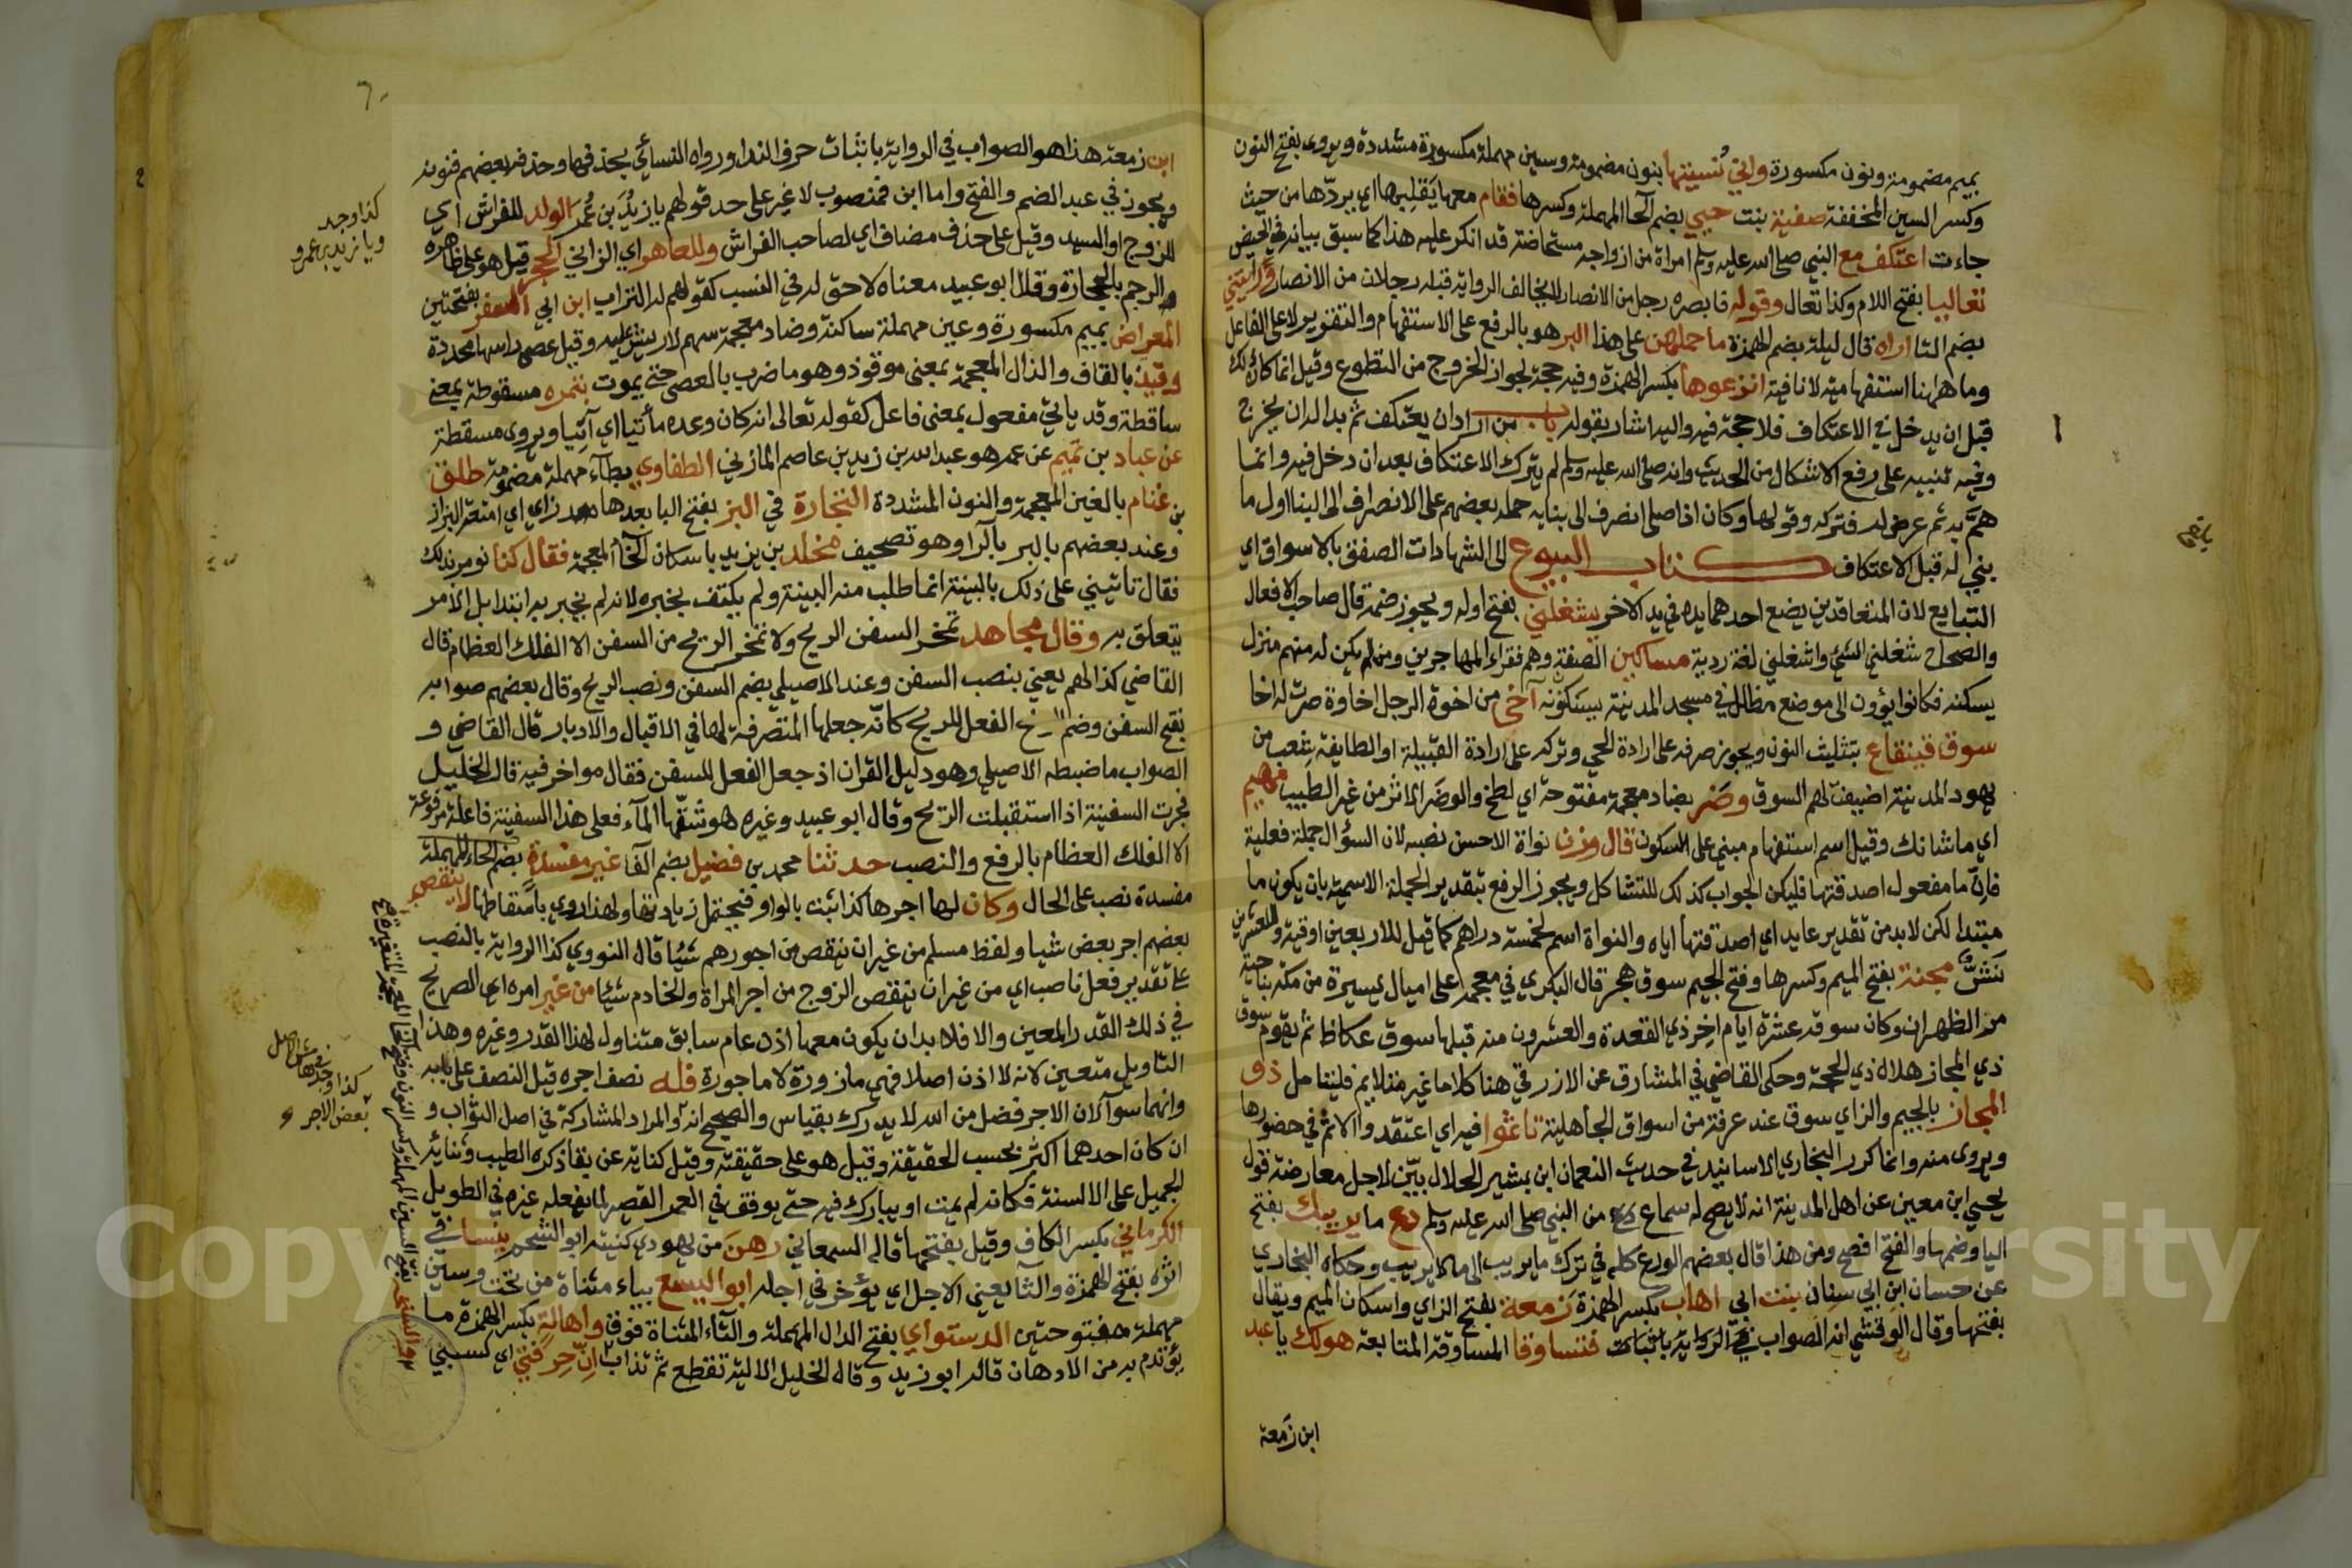 بميم مضمومة ونون مكسورة واني نُسيتها بنون مضمومة وسين مهملة مكسورة مشددة ويروى بفتح النون
وكسر السين المخففة صفية بنت حيي بضم الحا المهملة وكسرها فقام معها يَقلِبها اي يردّها من حيث
جاءت اعتكف مع النبي صلى الله عليه وسلم امراة من ازواجه مستحاضة قد انكر عليه هذا كما سبق بيانه في الحيض
تعاليا بفتح اللام وكذا تعال وقوله فابصره رجل من الانصار لا يخالف الرواية قبله رجلان من الانصار وارايتني
بضم التا اراه قال ليلة بضم الهمزة ما حملهن على هذا البر هو بالرفع على الاستفهام والتقرير لا على الفاعل
وما ههنا استفهامية لا نافية انزعوها بكسر الهمزة وفيه حجة لجواز الخروج من التطوع وقيل انما كان ذلك
قبل ان يدخل في الاعتكاف فلا حجة فيه واليه اشار بقوله باب من اراد ان يعتكف ثم بدا له ان يخرج
وفيه تنبيه على رفع الاشكال من الحديث وانه صلى الله عليه وسلم لم يترك الاعتكاف بعد ان دخل فيه وانما
همّ به ثم عرض له فتركه وقولها وكان اذا صلى انصرف الى بنايه حمله بعضهم على الانصراف الى البنا اول ما
بني له قبل الاعتكاف كتاب البيوع الى الشهادات الصفق بالاسواق اي
التبايع لان المتعاقدين يضع احدهما يده في يد الاخر يشغلني بفتح اوله ويجوز ضمه قال صاحب الافعال
والصحاح شغلني الشئ واشغلني لغة ردية مساكين الصفة وهم فقراء المهاجرين ومن لم يكن له منهم منزل
يسكنه فكانوا يؤون الى موضع مظلل في مسجد المدينة يسكنونه آخى من اخوة الرجل اخاوة صرت له اخا
سوق قينقاع بتثليث النون ويجوز صرفه على ارادة الحي وتركه على ارادة القبيلة او الطايفة شعب من
يهود المدينة اضيفت لهم السوق وضَر بضاد معجمة مفتوحة اي لطخ والوضَر الاثر من غير الطيب مهيم
اي ما شانك وقيل اسم استفهام مبني على السكون قال وزن نواة الاحسن نصبه لان السؤال جملة فعلية
فانّ ما مفعول اصدقتها فليكن الجواب كذلك للتشاكل ويجوز الرفع بتقدير الجملة الاسمية بان يكون ما
مبتدا لكن لا بد من تقدير عايد اي اصدقتها اياه والنواة اسم لخمسة دراهم كما قيل للاربعين اوقية وللعشرين
نَشٌّ مجنة بفتح الميم وكسرها وفتح الجيم سوق هجر قال البكري في معجمه على اميال يسيرة من مكة بناحية
مر الظهران وكان سوقه عشرة ايام اخِر ذي القعدة والعشرون منه قبلها سوق عكاظ ثم يقوم سوق
ذي المجاز هلال ذي الحجة وحكى القاضي في المشارق عن الازرقي هنا كلاما غير متلايم فليتامل ذو
المجاز بالجيم والزاي سوق عند عرفة من اسواق الجاهلية تاثموا فيه اي اعتقدوا الاثم في حضورها
ويروى منه وانما كرر البخاري الاسانيد في حديث النعمان ابن بشير الحلال بيّن لاجل معارضة قول
يحيى ابن معين عن اهل المدينة انه لا يصح له سماع من النبي صلى الله عليه وسلم دع ما يريبك بفتح
اليا وضمها والفتح افصح ومن هذا قال بعضهم الورع كله في ترك ما يريب الى ما لا يريب وحكاه البخاري
عن حسان ابن ابي سفيان بنت ابي اهاب بكسر الهمزة زمعة بفتح الزاي واسكان الميم ويقال
بفتحها وقال الوقشي انه الصواب في الرواية باثبات فتساوقا المساوقة المتابعة هو لك يا عبد
ابن زمعة
ابن زمعة هذا هو الصواب في الرواية باثبات حرف الندا ورواه النسائي بحذفها وحذفه بعضهم فنونه
ويجوز في عبد الضم والفتح واما ابن فمنصوب لا غير على حد قولهم يا زيدَُ بن عمر الولد للفراش اي
للزوج او السيد وقيل على حذف مضاف اي لصاحب الفراش وللعاهر اي الزاني الحجر قيل هو على ظاهره
الرجم بالحجارة وقال ابو عبيد معناه لا حق له في النسب كقولهم له التراب ابن ابي السفر بفتحتين
المعراض بميم مكسورة وعين مهملة ساكنة وضاد معجمة سهم لا ريش عليه وقيل عصى راسها محددة
وقيذ بالقاف والذال المعجمة بمعنى موقوذ وهو ما ضرب بالعصى حتى يموت بتمره مسقوطة بمعنى
ساقطة وقد ياتي مفعول بمعنى فاعل كقوله تعالى انه كان وعده مأتيا اي آتيا ويروى مسقطة
عن عباد بن تميم عن عمه هو عبد الله بن زيد بن عاصم المازني الطفاوي بطآء مهملة مضمومة طلق
بن غنام بالغين المعجمة والنون المشددة التجارة في البز بفتح البا بعدها زاي اي امتعة البزاز
وعند بعضهم بالبر بالرا وهو تصحيف مخلد بن يزيد باسكان الخا المعجمة فقال كنا نومر بذلك
فقال تاتيني على ذلك بالبينة انما طلب منه البينة ولم يكتف بخبره لانه لم يخبر به ابتدا بل الامر
يتعلق به وقال مجاهد تمخر السفن الريح ولا تمخر الريح من السفن الا الفلك العظام قال
القاضي كذا لهم يعني بنصب السفن وعند الاصيلي بضم السفن ونصب الريح وقال بعضهم صوابه
بفتح السفن وضم الريح الفعل للريح كانّه جعلها المتصرفة لها في الاقبال والادبار قال القاضي و
الصواب ما ضبطه الاصيلي وهو دليل القران اذ جعل الفعل للسفن فقال مواخر فيه قال الخليل
مخرت السفينة اذا استقبلت الريح وقال ابو عبيد وغيره هو شقّها المآء فعلى هذا السفينة فاعلة مرفوعة
الا الفلك العظام بالرفع والنصب حدثنا محمد بن فضيل بضم الفا غير مفسدة
مفسدة نصب على الحال وكان لها اجرها كذا ثبت بالواو فيحتمل زيادتها ولهذا روي باسقاطها لا ينقص
بعضهم اجر بعض شيا ولفظ مسلم من غير ان ينقص من اجورهم شيا قال النووي كذا الرواية بالنصب
على تقدير فعل ناصب اي من غير ان ينقص الزوج من اجر المراة والخادم شيئا من غير امره اي الصريح
في ذلك القدر المعين والا فلا بد ان يكون معها اذن عام سابق متناول لهذا القدر وغيره وهذا
التاويل متعين لانه لا اذن اصلا فهي مازورة لا ماجورة فله نصف اجره قيل النصف على بابه
وانهما سوآ لان الاجر فضل من الله لا يدرك بقياس والصحيح انه المراد المشاركة في اصل الثواب و
ان كان احدهما اكثر بحسب الحقيقة وقيل هو على حقيقته وقيل كناية عن بقا ذكره الطيب وثنائه
الجميل على الالسنة فكانه لم يمت او يبارك فيه حتى يوفق في العمر القصير لما يفعله غيره في الطويل
الكرماني بكسر الكاف وقيل بفتحها قاله السمعاني رهن من يهودي كنيته ابو الشحم ينسا في
اثره بفتح الهمزة والثا يعني الاجل اي يؤخر في اجله ابو اليسع بياء مثناة من تحت وسين
مهملة مفتوحتين الدستواي بفتح الدال المهملة والتاء المثناة فوق واهالة بكسر الهمزة ما
يؤتدم به من الادهان قاله ابو زيد وقاله الخليل الالية تقطع ثم تذاب انّ حِرفتي اي كسبي
كذا وجد
ويا زيد بن عمرو
كذا وجد
بعض الاجر